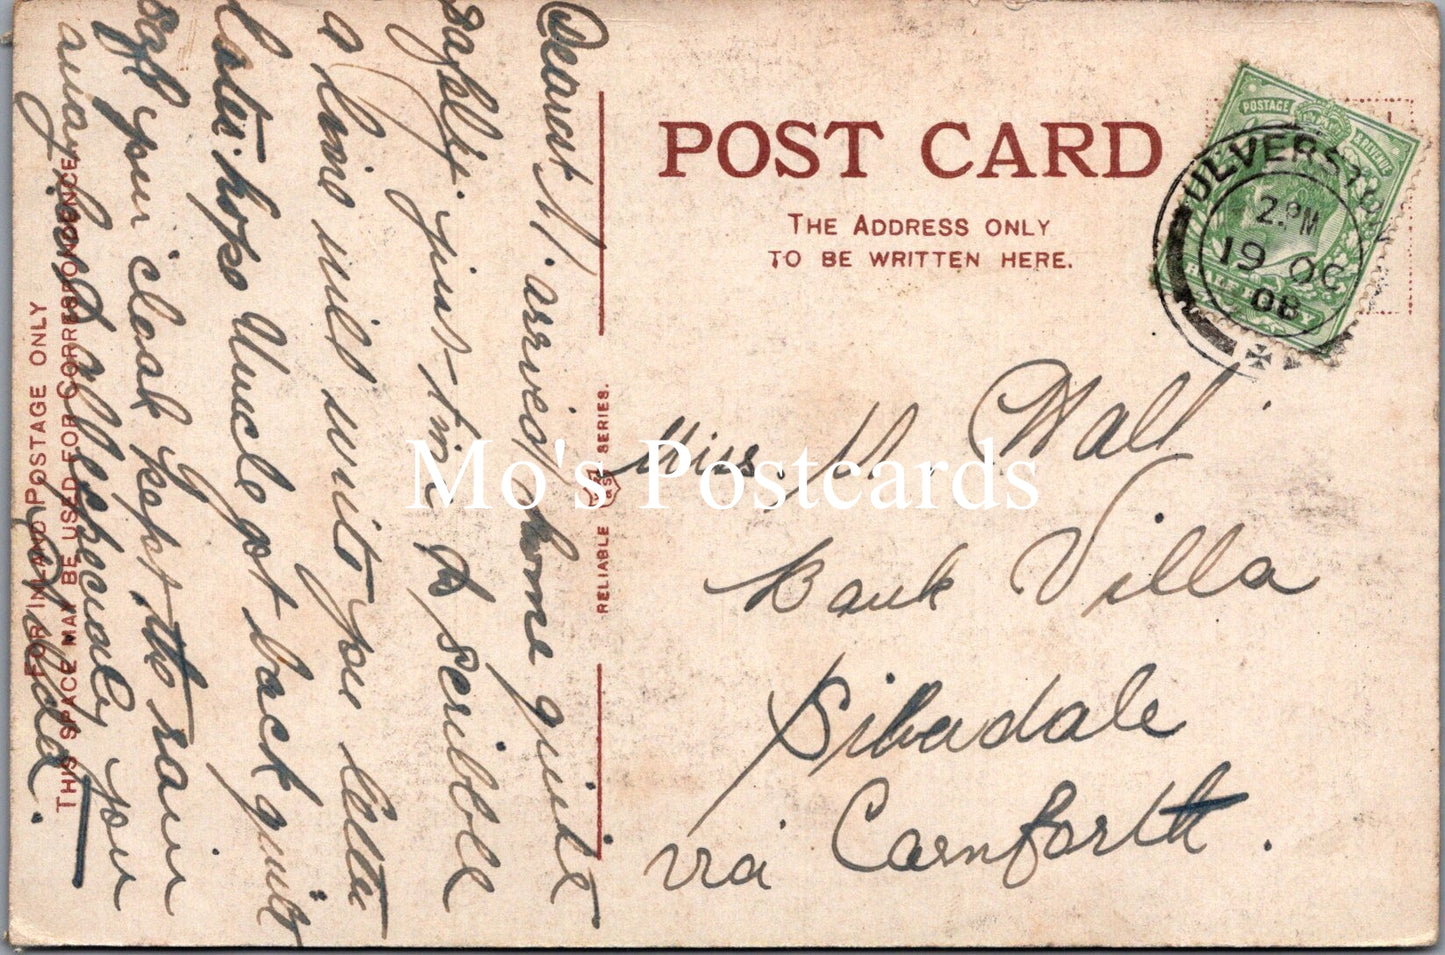 POST CARD
THE ADDRESS ONLY
TO BE WRITTEN HERE.
POSTAGE & REVENUE
HALFPENNY
ULVERSTON
2. PM
19 OC
08
Miss. M. Wall
Bank Villa
Silverdale
via Carnforth.
RELIABLE SERIES.
FOR INLAND POSTAGE ONLY
THIS SPACE MAY BE USED FOR CORRESPONDENCE
Dearest M. arrived home quite
safely. just time to scribble
a line will write you letter
later. hope Uncle got back quite
safe your cloak kept the rain
away beautifully especially your
Mo's Postcards